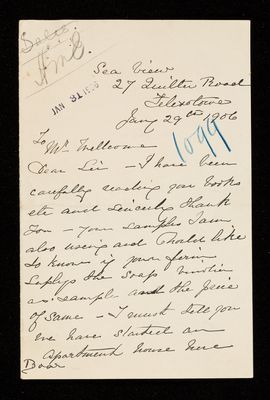 Sales
H.M.C.
JAN 31 1906
Sea View
27 Quilter Road
Felixstowe
Jany 29th 1906
1099
To Mr Wellcome
Dear Sir - I have been
carefully reading your books
etc and sincerely thank
You - your samples I am
also using and should like
to know if your firm
Supplys the Soap
as sample and the price
of same - I must tell you
we have started an
apartment house here